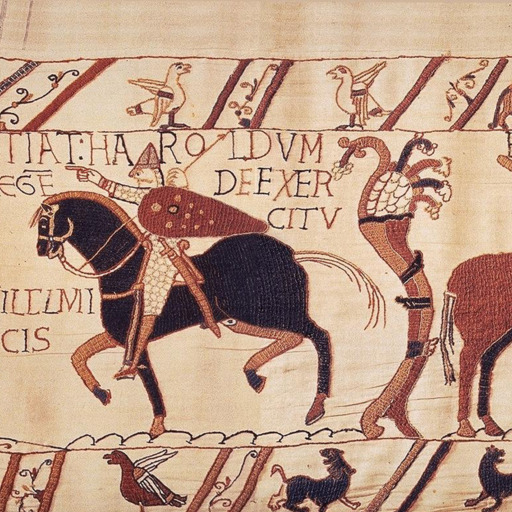 TIAT: HAROLDVM
EGE DE EXER
CITV
ILLELMI
CIS